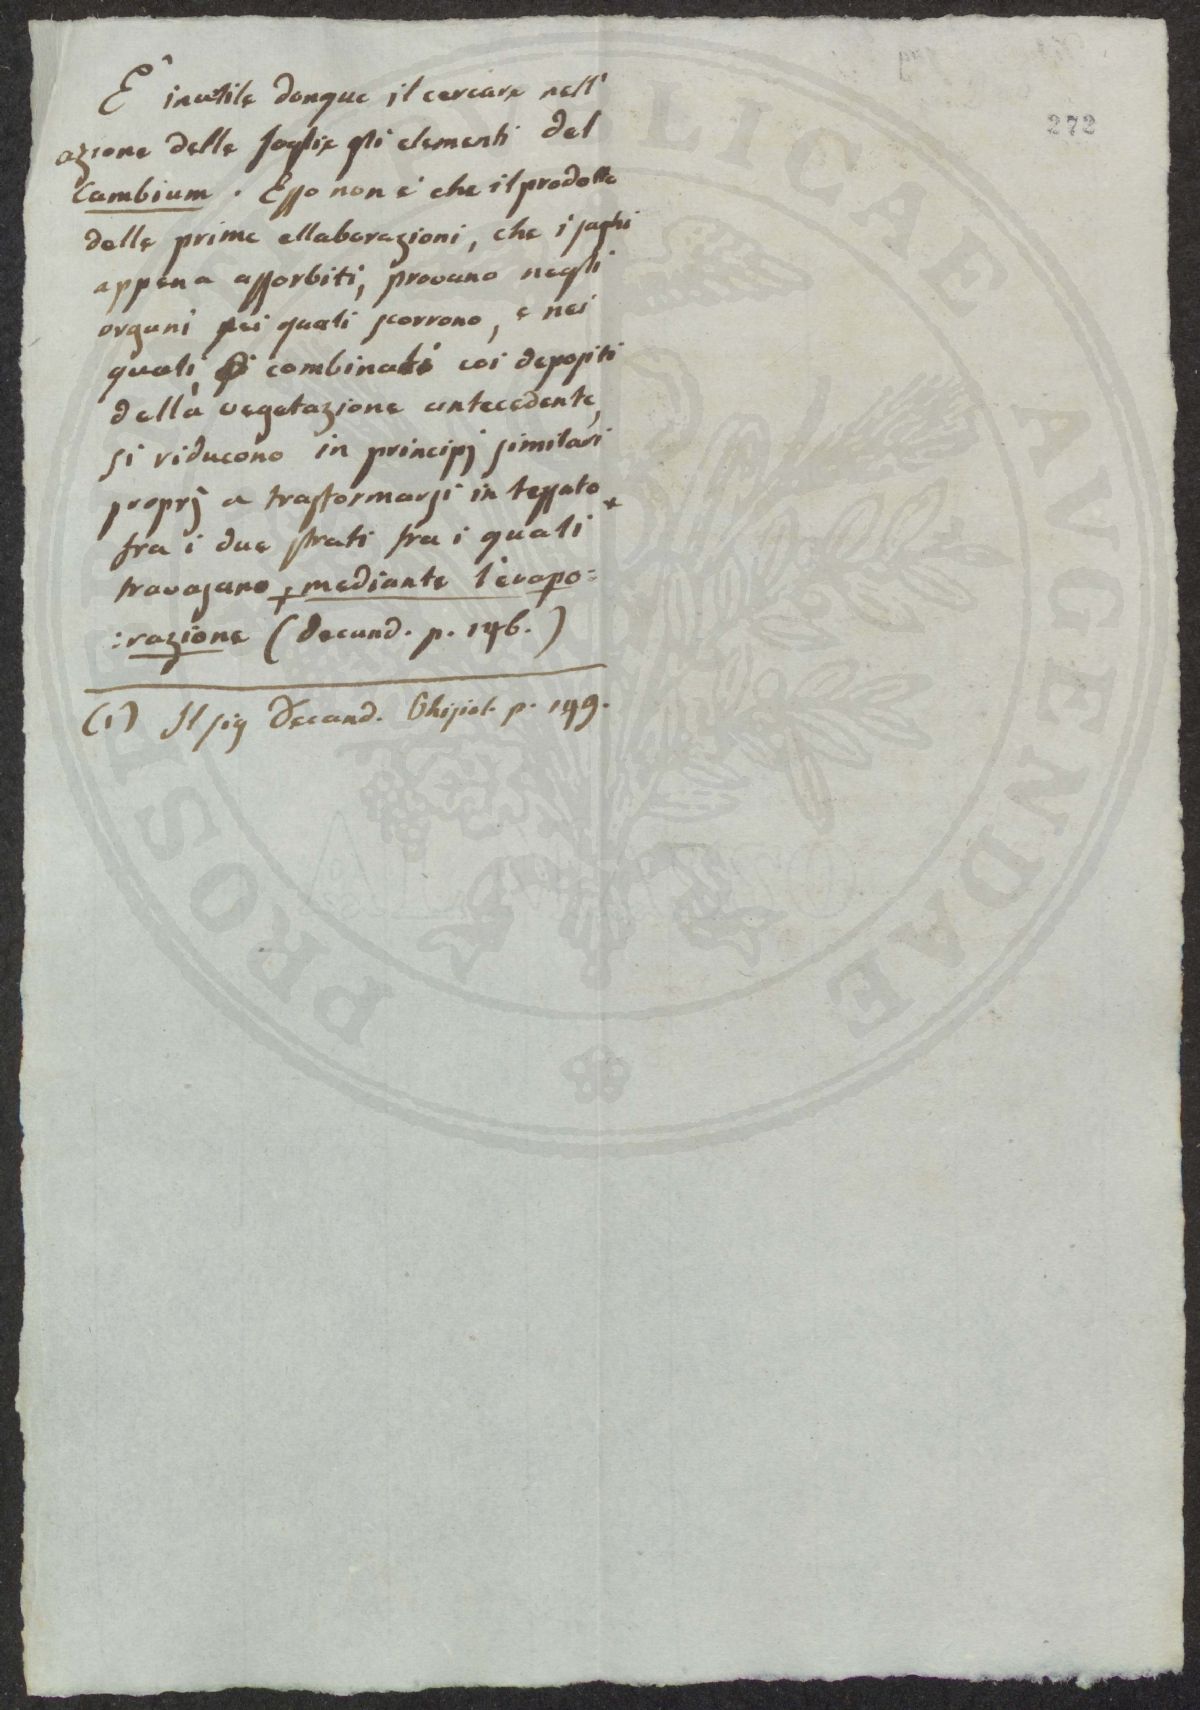 272
E' inutile donque il cercare nell'
azione delle foglie gli elementi del
Cambium. Esso non è che il prodotto
delle prime ellaborazioni, che i sughi
appena assorbiti, provano negli
organi pei quali scorrono, e nei
quali, combinati coi depositi
della vegetazione antecedente,
si riducono in principj similari
proprj a trasformarsi in tessuto
fra i due strati fra i quali
travasano, mediante l'evapo=
:razione (Decand. p. 146.)
(1) Il sig Decand. p. 149.
PROSPE LICAE AVGENDAE